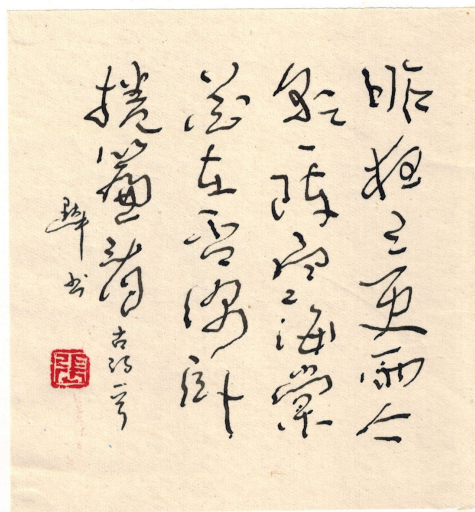 昨夜三更雨今
朝一陣寒海棠
花在否側卧
捲簾看 古诗一首
书